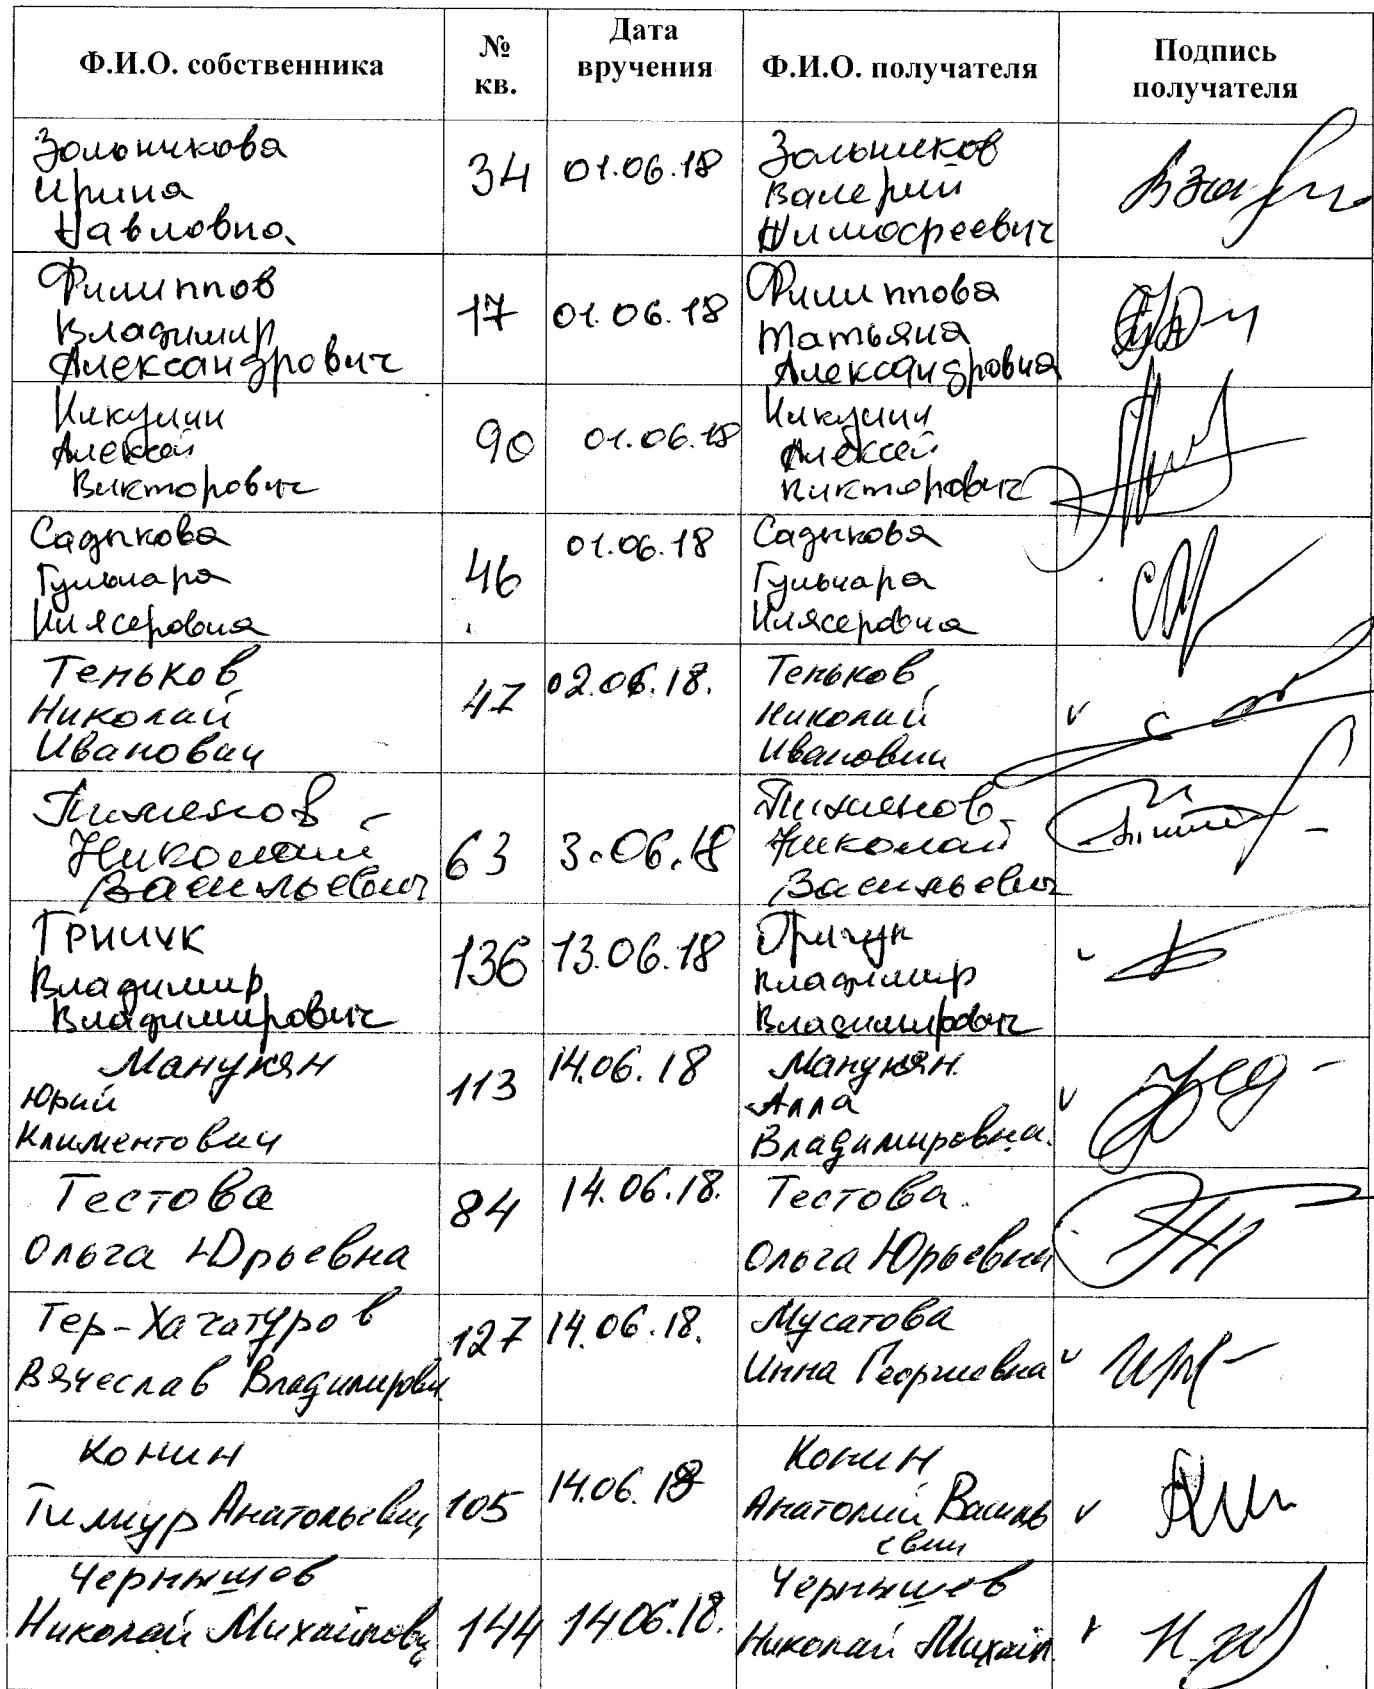 Ф.И.О. собственника
№
кв.
Дата
вручения
Ф.И.О. получателя
Подпись
получателя
Зольникова
Ирина
Павловна
34
01.06.18
Зольников
Валерий
Филиппов
Владимир
Александрович
17
01.06.18
Филиппова
Татьяна
Александровна
Никулин
Алексей
Викторович
90
01.06.18
Никулин
Алексей
Викторович
Садыкова
Гульнара
Илясеровна
46
01.06.18
Садыкова
Гульнара
Илясеровна
Теньков
Николай
Иванович
47
02.06.18.
Теньков
Николай
Иванович
Пименов
Николай
Васильевич
63
3.06.18
Пименов
Николай
Васильевич
Грищук
Владимир
Владимирович
136
13.06.18
Владимир
Владимирович
Манукян
Юрий
Климентович
113
14.06.18
Манукян
Алла
Владимировна.
Тестова
Ольга Юрьевна
84
14.06.18.
Тестова
Ольга Юрьевна
Тер-Хачатуров
Вячеслав Владимирович
127
14.06.18.
Мусатова
Инна Георгиевна
Конин
Тимур Анатольевич
105
14.06.18
Конин
Анатолий Василь
евич
Чернышов
Николай Михайлович
144
14.06.18.
Чернышов
Николай Михайл.